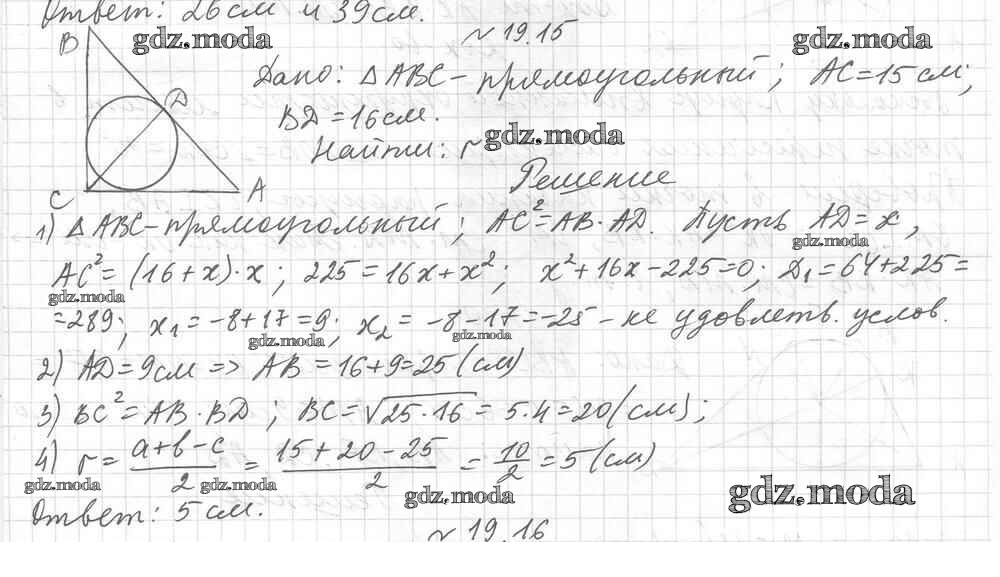 Ответ: 26 см и 39 см.
№ 19.15
gdz.moda
B
D
C
A
Дано: △ABC - прямоугольный; AC = 15 см;
BD = 16 см.
Найти: r
gdz.moda
Решение
1) △ABC - прямоугольный; AC² = AB · AD. Пусть AD = x,
gdz.moda
AC² = (16 + x) · x; 225 = 16x + x²; x² + 16x - 225 = 0; D₁ = 64 + 225 =
gdz.moda
= 289; x₁ = -8 + 17 = 9; x₂ = -8 - 17 = -25 - не удовлетв. услов.
gdz.moda gdz.moda
2) AD = 9 см => AB = 16 + 9 = 25 (см)
3) BC² = AB · BD; BC = √25 · 16 = 5 · 4 = 20 (см);
4) r = a + b - c / 2 = 15 + 20 - 25 / 2 = 10 / 2 = 5 (см)
gdz.moda gdz.moda gdz.moda gdz.moda
Ответ: 5 см.
№ 19.16